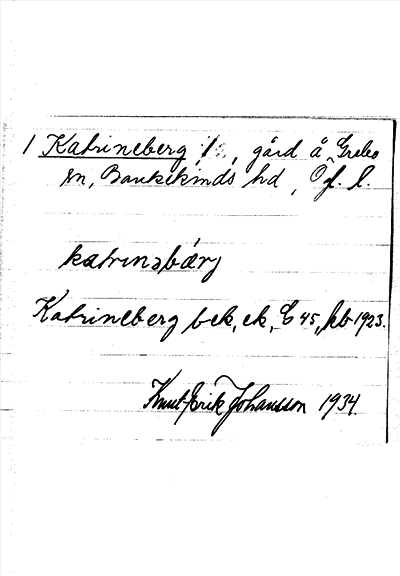 1 Katrineberg, gård å Grebo
sn, Bankekinds hd, Ög. l.
katrinəbærj
Katrineberg bek, ek, E 45, kb 1923.
Knut-Erik Johansson 1934.